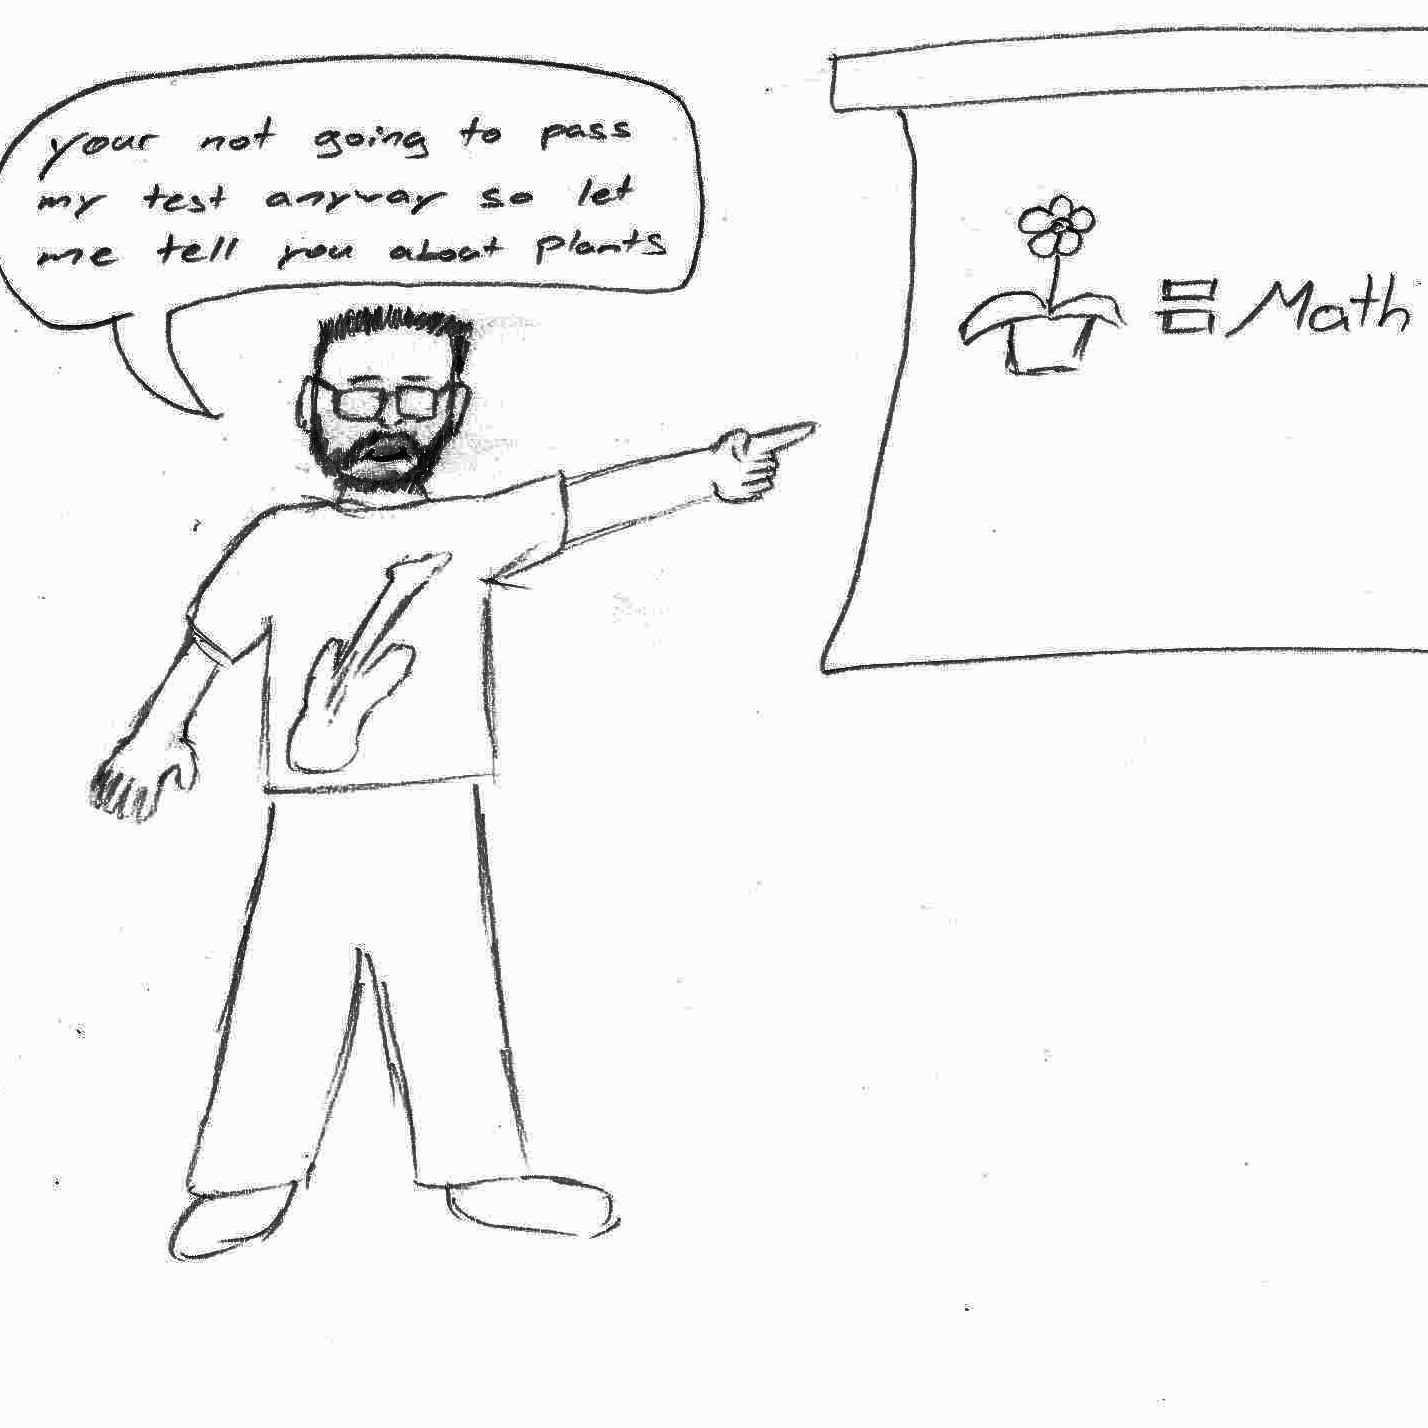 your not going to pass
my test anyway so let
me tell you about plants
= Math